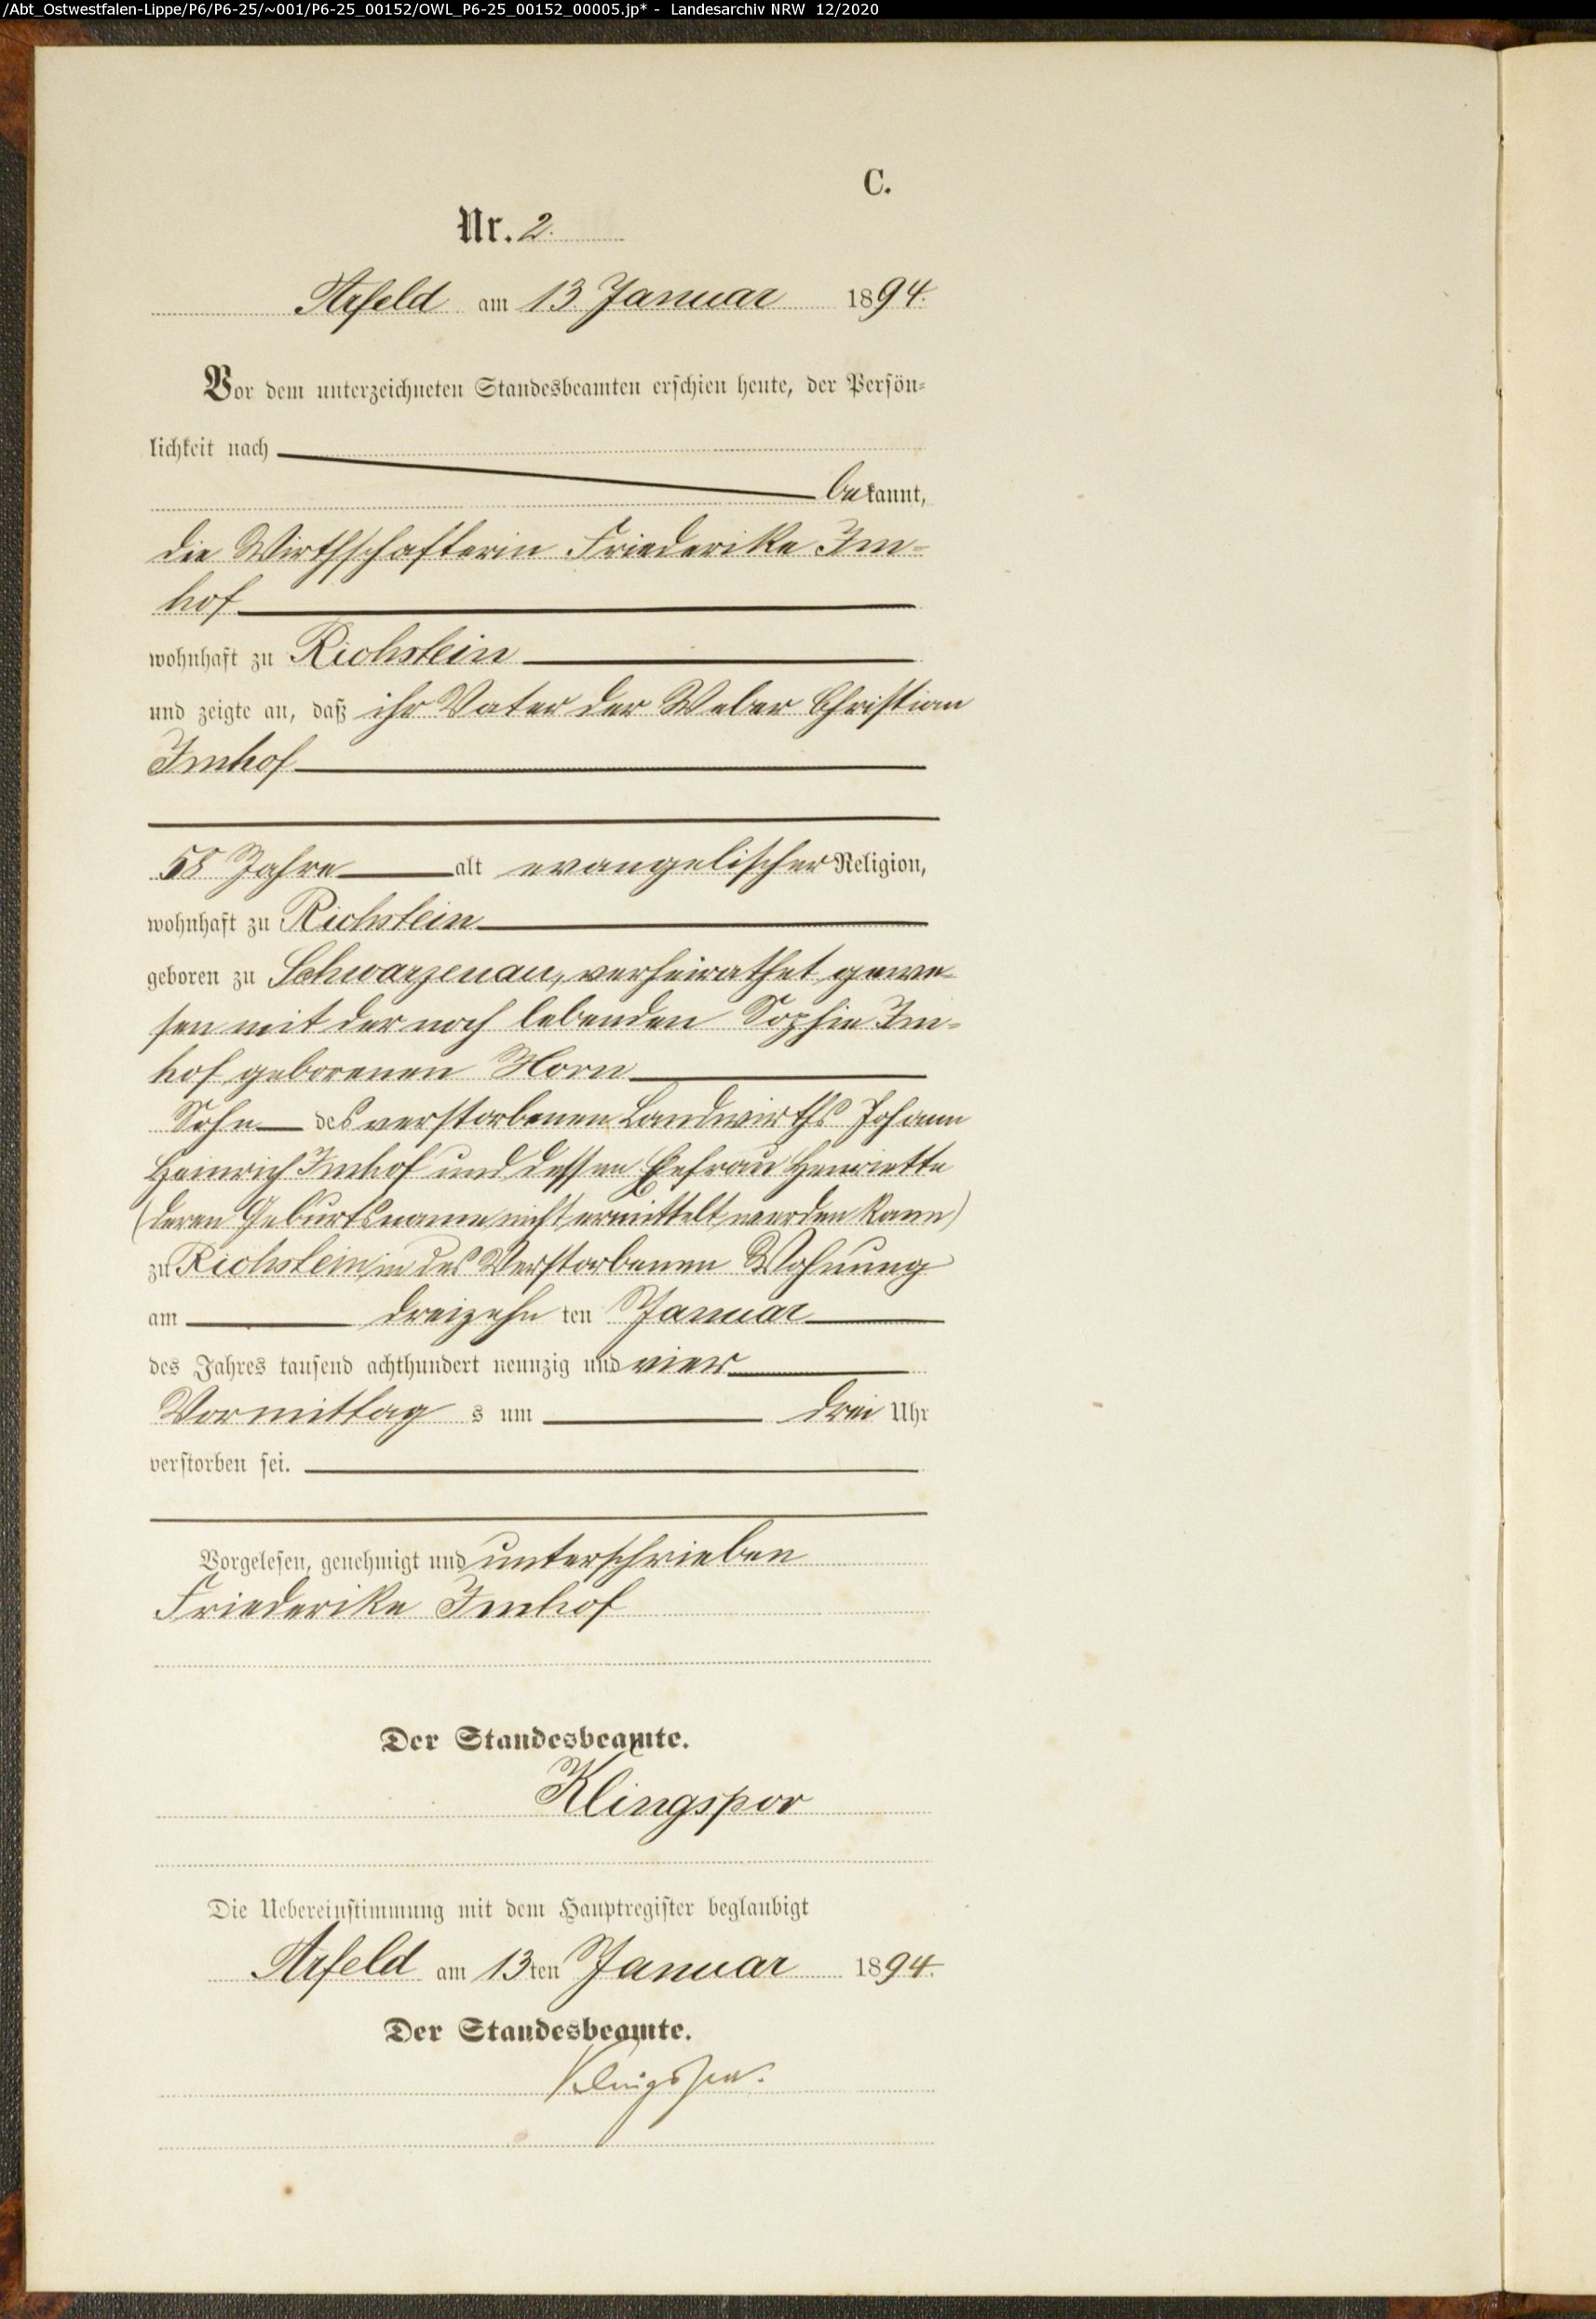 /Abt_Ostwestfalen-Lippe/P6/P6-25/~001/P6-25_00152/OWL_P6-25_00152_00005.jp* - Landesarchiv NRW 12/2020
C.
Nr. 2.
Arfeld am 13. Januar 1894.
Vor dem unterzeichneten Standesbeamten erschien heute, der Persön-
lichkeit nach
bekannt,
die Wirthschafterin Friederike Im-
hof
wohnhaft zu Richstein
und zeigte an, daß ihr Vater der Weber Christian
Imhof
58 Jahre alt evangelischer Religion,
wohnhaft zu Richstein
geboren zu Schwarzenau, verheirathet gewe-
sen mit der noch lebenden Sophie Im-
hof geborenen Horn
Sohn des verstorbenen Landwirths Johann
Heinrich Imhof und dessen Ehefrau Henriette
(deren Geburtsname nicht ermittelt werden kann)
zu Richstein in des Verstorbenen Wohnung
am dreizehn ten Januar
des Jahres tausend achthundert neunzig und vier
Vormittag s um drei Uhr
verstorben sei.
Vorgelesen, genehmigt und unterschrieben
Friederike Imhof
Der Standesbeamte.
Klingspor
Die Uebereinstimmung mit dem Hauptregister beglaubigt
Arfeld am 13ten Januar 1894.
Der Standesbeamte.
Klingspor.